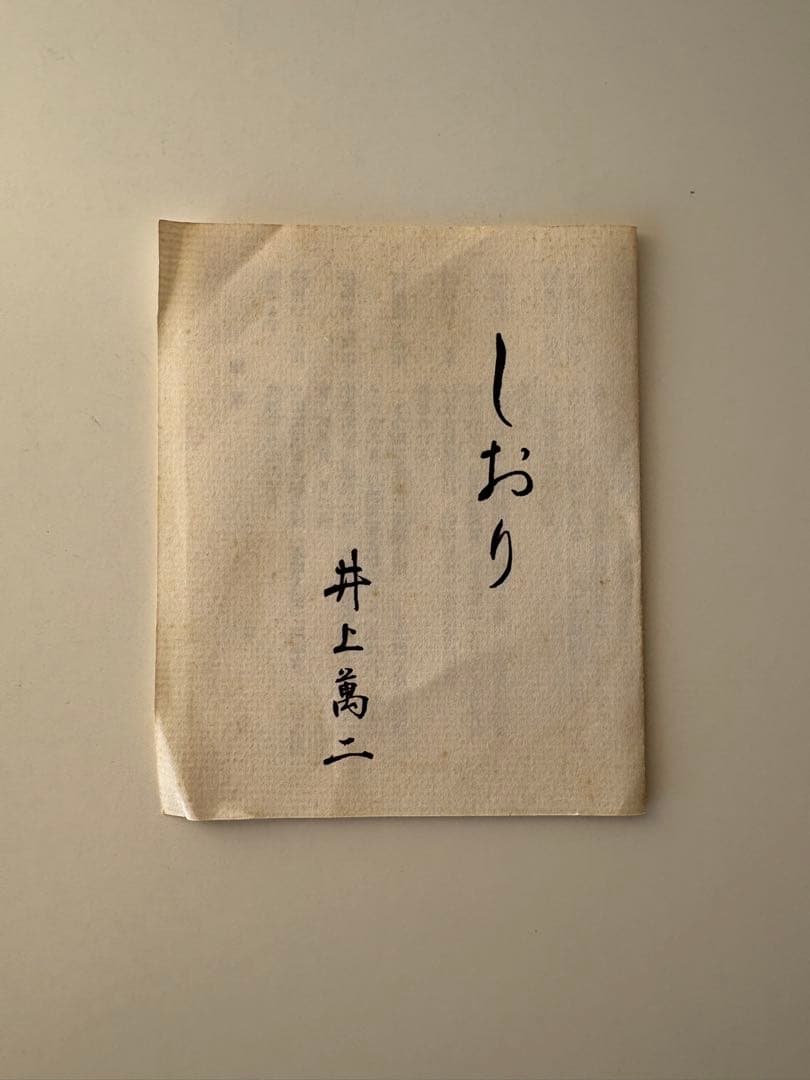 しおり
井上萬二